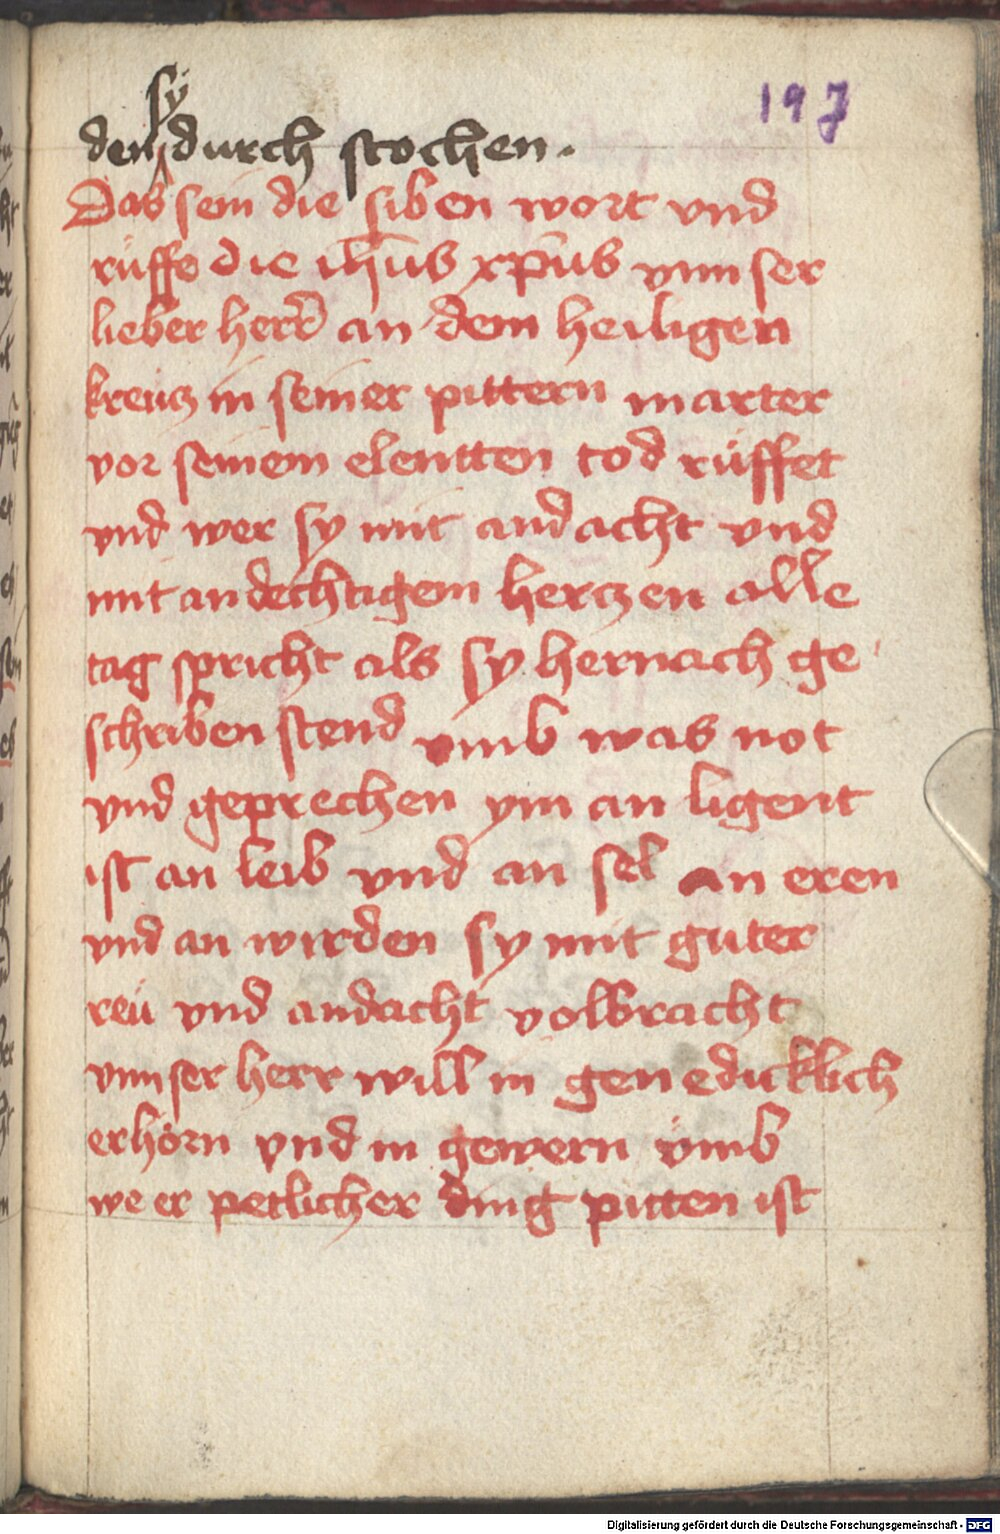 197
sy
den durch stochen.
Das sein die siben wort und
rüffe die ihus xpus vnnser
lieber herr an dem heiligen
kreücz in seiner pittern marter
vor seinem elentten tod rüffet
vnd wer sy mit andacht vnd
mit andechtigem herczen alle
tag spricht als sy hernach ge
schriben stend vmb was not
vnd geprechen ym an ligent
ist an leib vnd an sel an eren
vnd an wirden sy mit guter
reü vnd andacht volbracht
vnnser herr will in genedicklich
erhörn vnd in gewern vmb
we er petlicher ding pitten ist
Digitalisierung gefördert durch die Deutsche Forschungsgemeinschaft - DFG